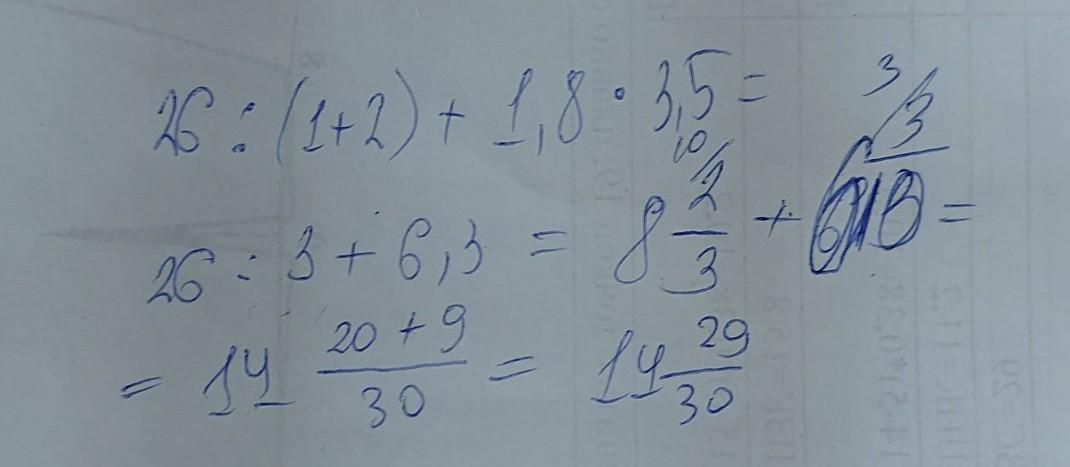 26 : (1+2) + 1,8 · 3,5 =
26 : 3 + 6,3 = 8 2/3 + 6 3/10 =
= 14 (20 + 9)/30 = 14 29/30